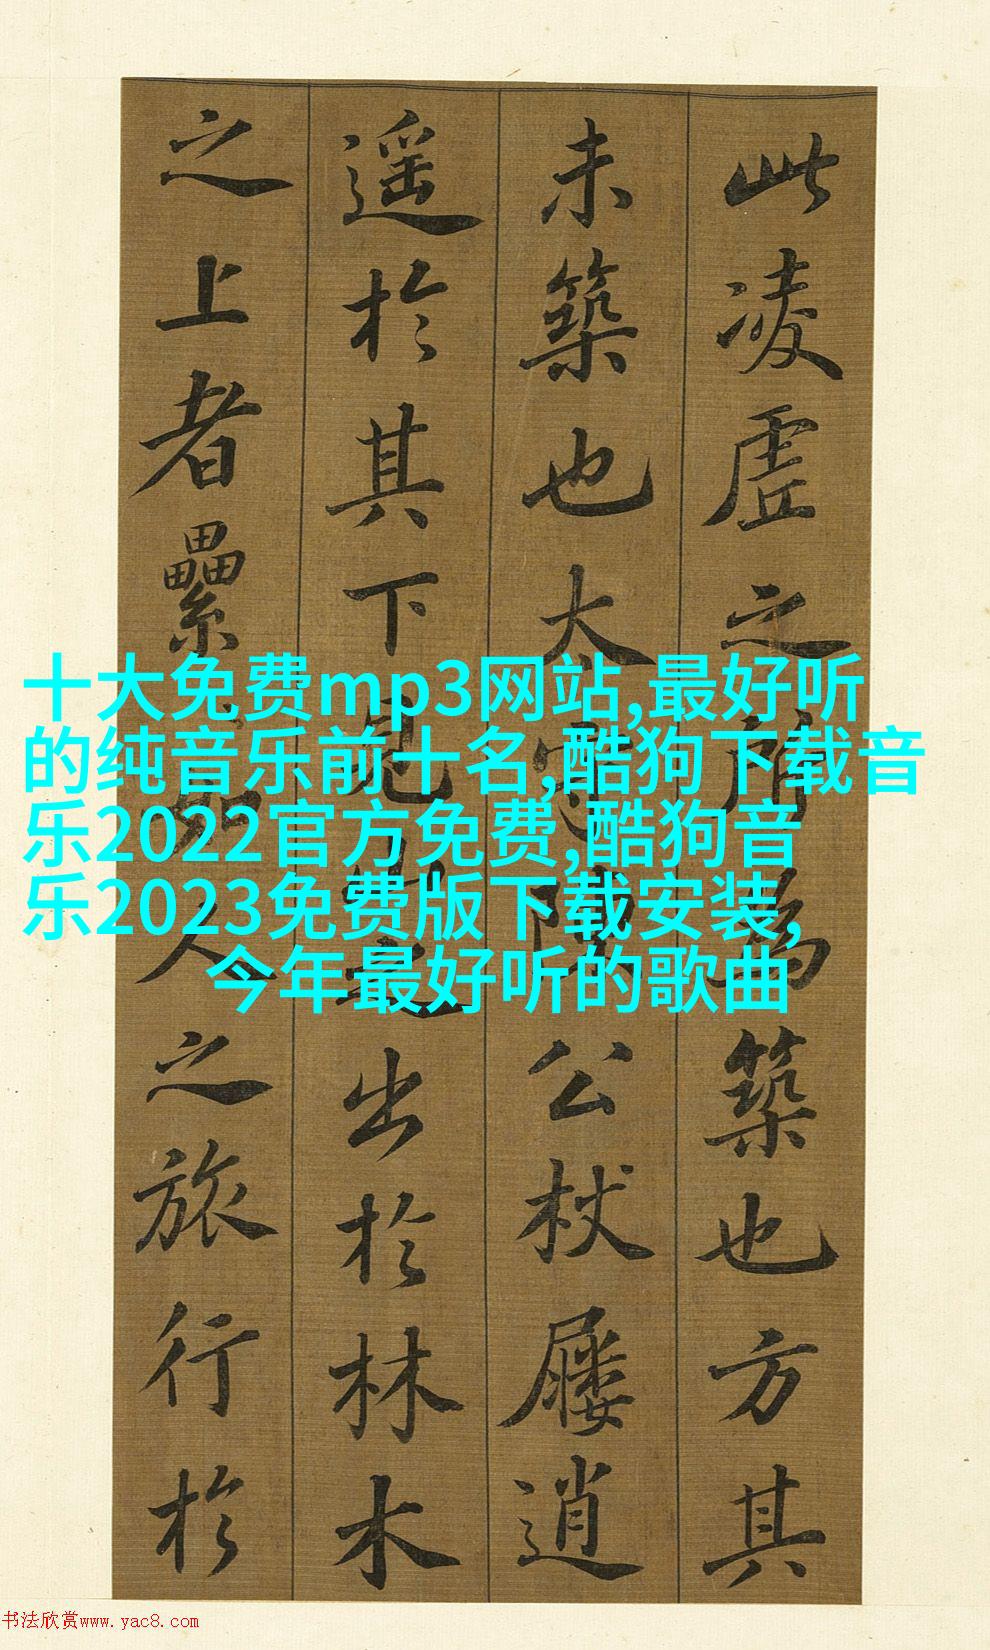 此凌虛之所為築也方其
未築也太守陳公杖屨逍
遥於其下見山之出於林木
之上者纍如人之旅行於
十大免费mp3网站,最好听
的纯音乐前十名,酷狗下载音
乐2022官方免费,酷狗音
乐2023免费版下载安装,
今年最好听的歌曲
书法欣赏www.yac8.com